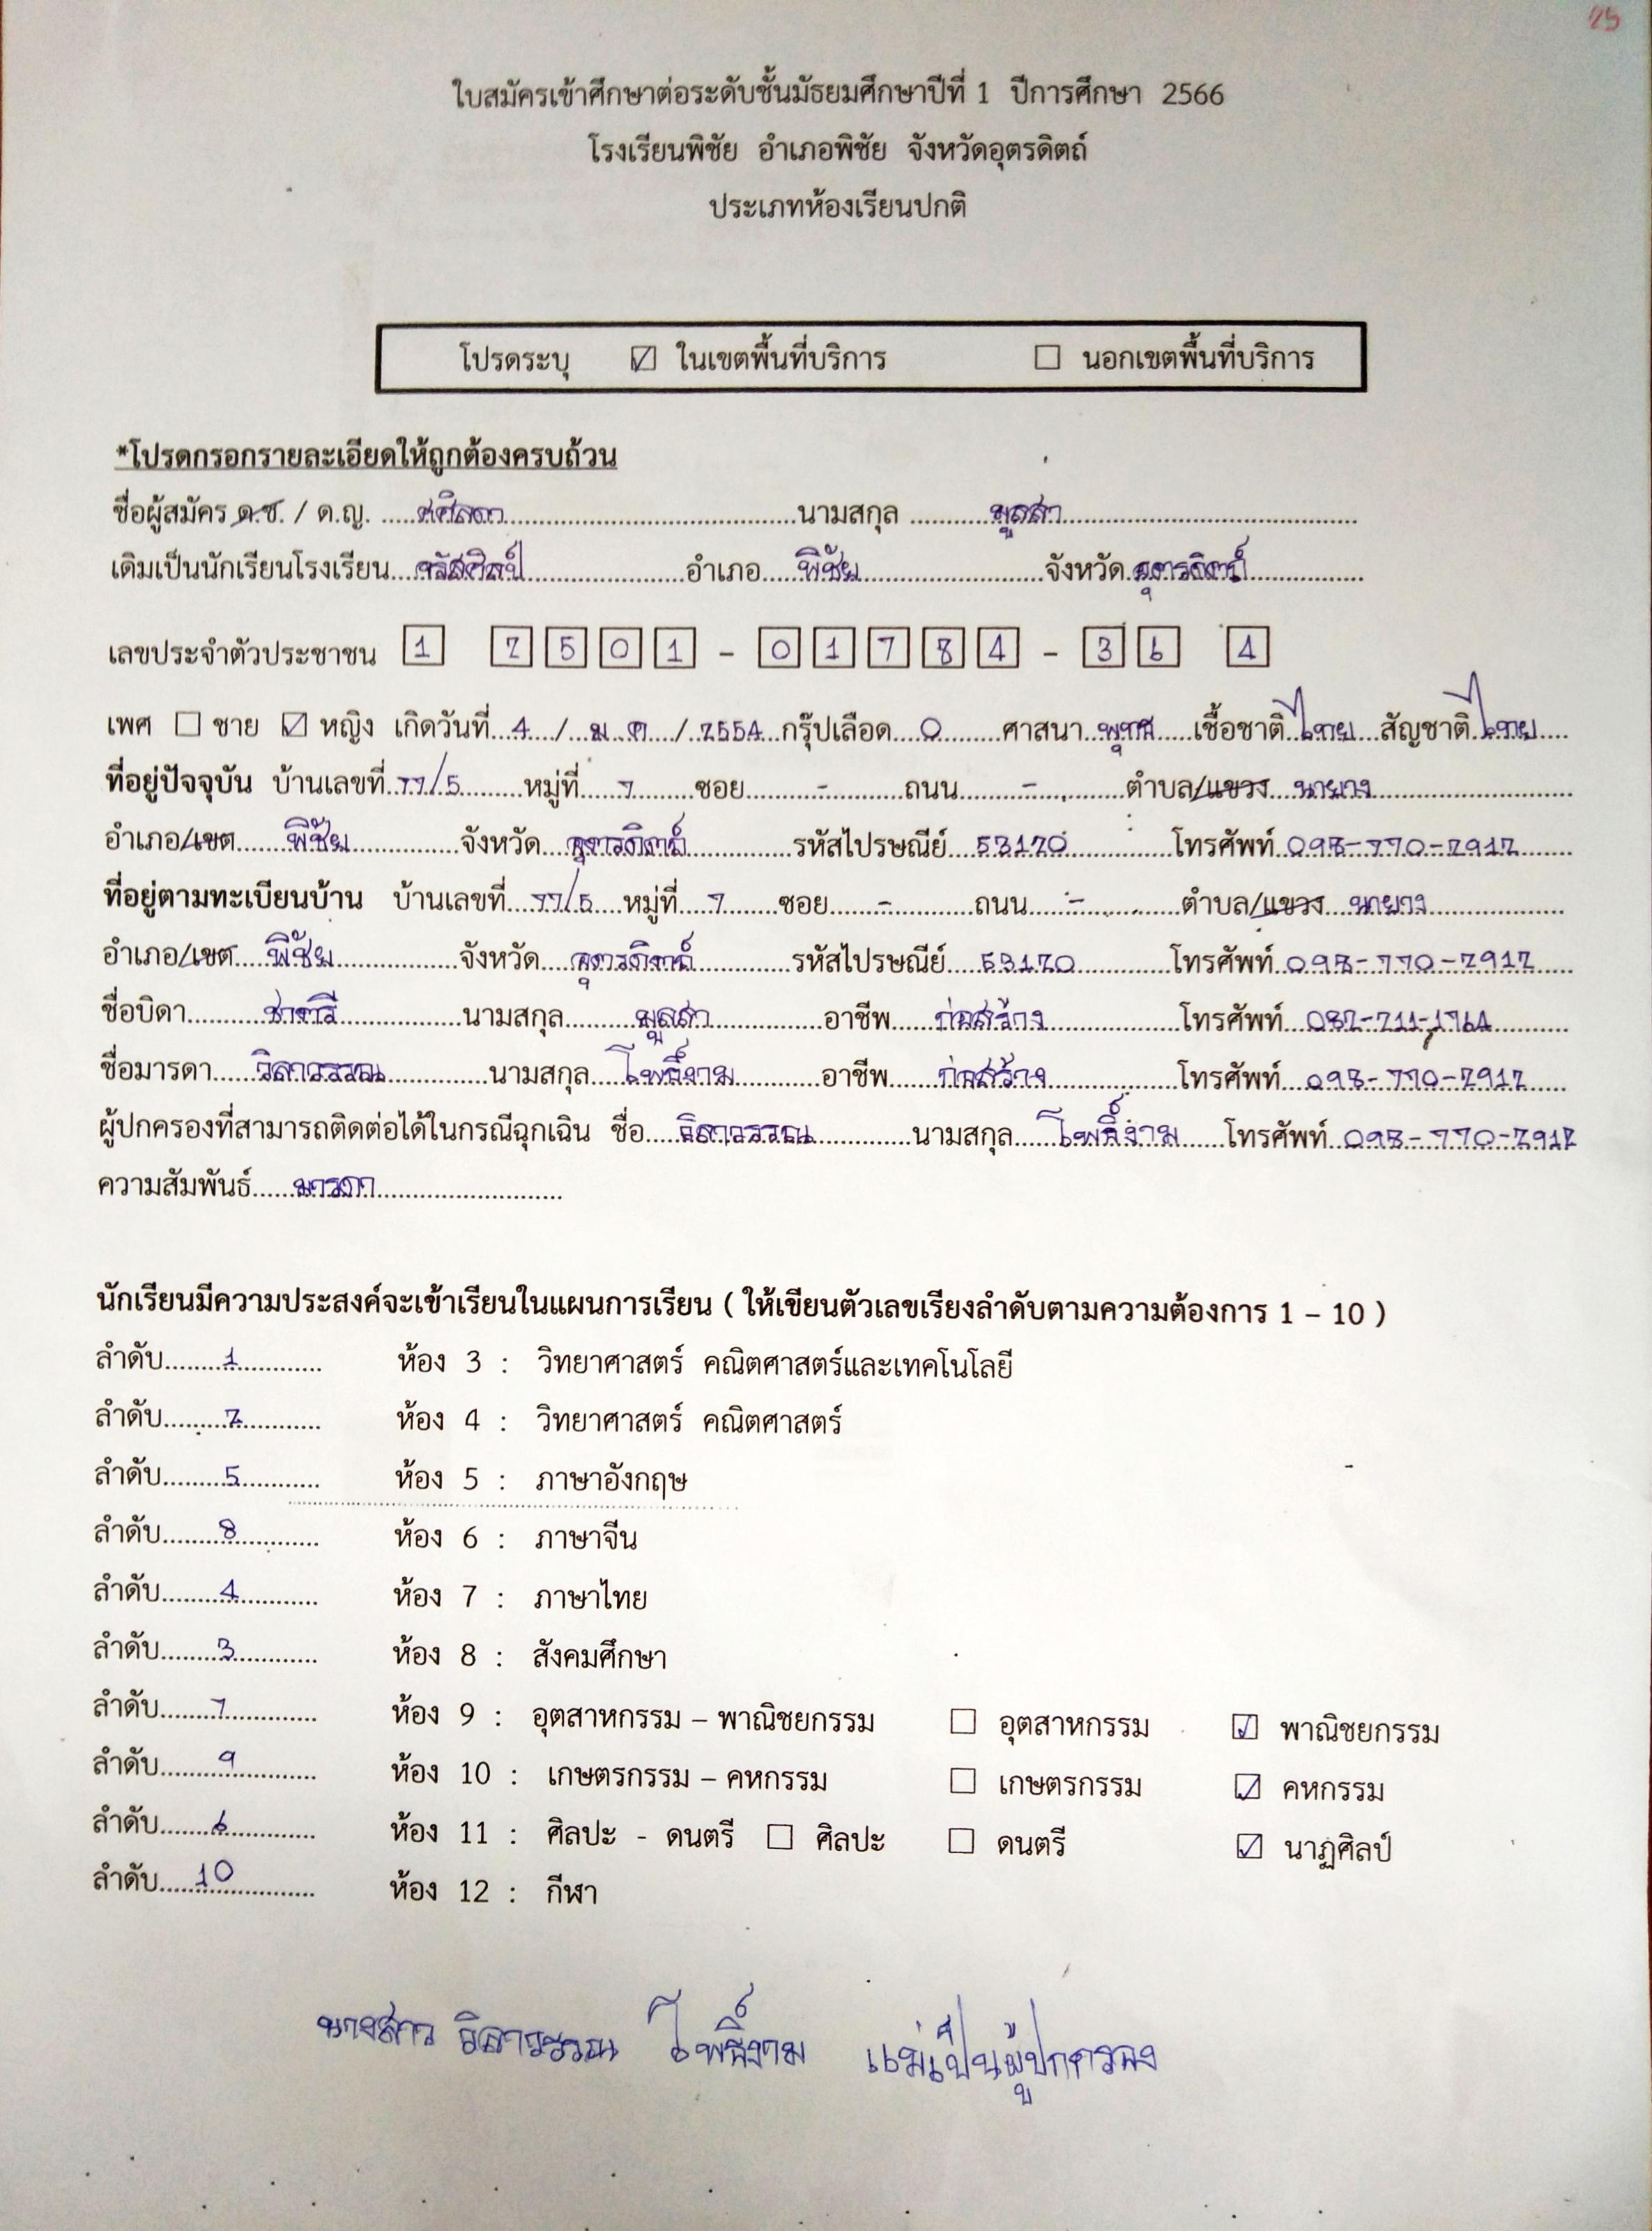 25
ใบสมัครเข้าศึกษาต่อระดับชั้นมัธยมศึกษาปีที่ 1 ปีการศึกษา 2566
โรงเรียนพิชัย อำเภอพิชัย จังหวัดอุตรดิตถ์
ประเภทห้องเรียนปกติ
โปรดระบุ ☑ ในเขตพื้นที่บริการ ☐ นอกเขตพื้นที่บริการ
*โปรดกรอกรายละเอียดให้ถูกต้องครบถ้วน
ชื่อผู้สมัคร ด.ช. / ด.ญ. ศศิลดา นามสกุล มูลสา
เดิมเป็นนักเรียนโรงเรียน จรัสศิลป์ อำเภอ พิชัย จังหวัด อุตรดิตถ์
เลขประจำตัวประชาชน 1 2501 - 01784 - 36 4
เพศ ☐ ชาย ☑ หญิง เกิดวันที่ 4 / ม.ค / 2554 กรุ๊ปเลือด O ศาสนา พุทธ เชื้อชาติ ไทย สัญชาติ ไทย
ที่อยู่ปัจจุบัน บ้านเลขที่ 77/5 หมู่ที่ 7 ซอย - ถนน - ตำบล/แขวง นายาง
อำเภอ/เขต พิชัย จังหวัด อุตรดิตถ์ รหัสไปรษณีย์ 53120 โทรศัพท์ 098-770-2912
ที่อยู่ตามทะเบียนบ้าน บ้านเลขที่ 77/5 หมู่ที่ 7 ซอย - ถนน - ตำบล/แขวง นายาง
อำเภอ/เขต พิชัย จังหวัด อุตรดิตถ์ รหัสไปรษณีย์ 53120 โทรศัพท์ 098-770-2912
ชื่อบิดา ชาตรี นามสกุล มูลสา อาชีพ ก่อสร้าง โทรศัพท์ 082-211-1964
ชื่อมารดา วิลาวรรณ นามสกุล โพธิ์งาม อาชีพ ก่อสร้าง โทรศัพท์ 098-770-2912
ผู้ปกครองที่สามารถติดต่อได้ในกรณีฉุกเฉิน ชื่อ วิลาวรรณ นามสกุล โพธิ์งาม โทรศัพท์ 098-770-2912
ความสัมพันธ์ มารดา
นักเรียนมีความประสงค์จะเข้าเรียนในแผนการเรียน ( ให้เขียนตัวเลขเรียงลำดับตามความต้องการ 1 – 10 )
ลำดับ 1 ห้อง 3 : วิทยาศาสตร์ คณิตศาสตร์และเทคโนโลยี
ลำดับ 2 ห้อง 4 : วิทยาศาสตร์ คณิตศาสตร์
ลำดับ 5 ห้อง 5 : ภาษาอังกฤษ
ลำดับ 8 ห้อง 6 : ภาษาจีน
ลำดับ 4 ห้อง 7 : ภาษาไทย
ลำดับ 3 ห้อง 8 : สังคมศึกษา
ลำดับ 7 ห้อง 9 : อุตสาหกรรม – พาณิชยกรรม ☐ อุตสาหกรรม ☑ พาณิชยกรรม
ลำดับ 9 ห้อง 10 : เกษตรกรรม – คหกรรม ☐ เกษตรกรรม ☑ คหกรรม
ลำดับ 6 ห้อง 11 : ศิลปะ - ดนตรี ☐ ศิลปะ ☐ ดนตรี ☑ นาฏศิลป์
ลำดับ 10 ห้อง 12 : กีฬา
นางสาว วิลาวรรณ โพธิ์งาม แม่เป็นผู้ปกครอง